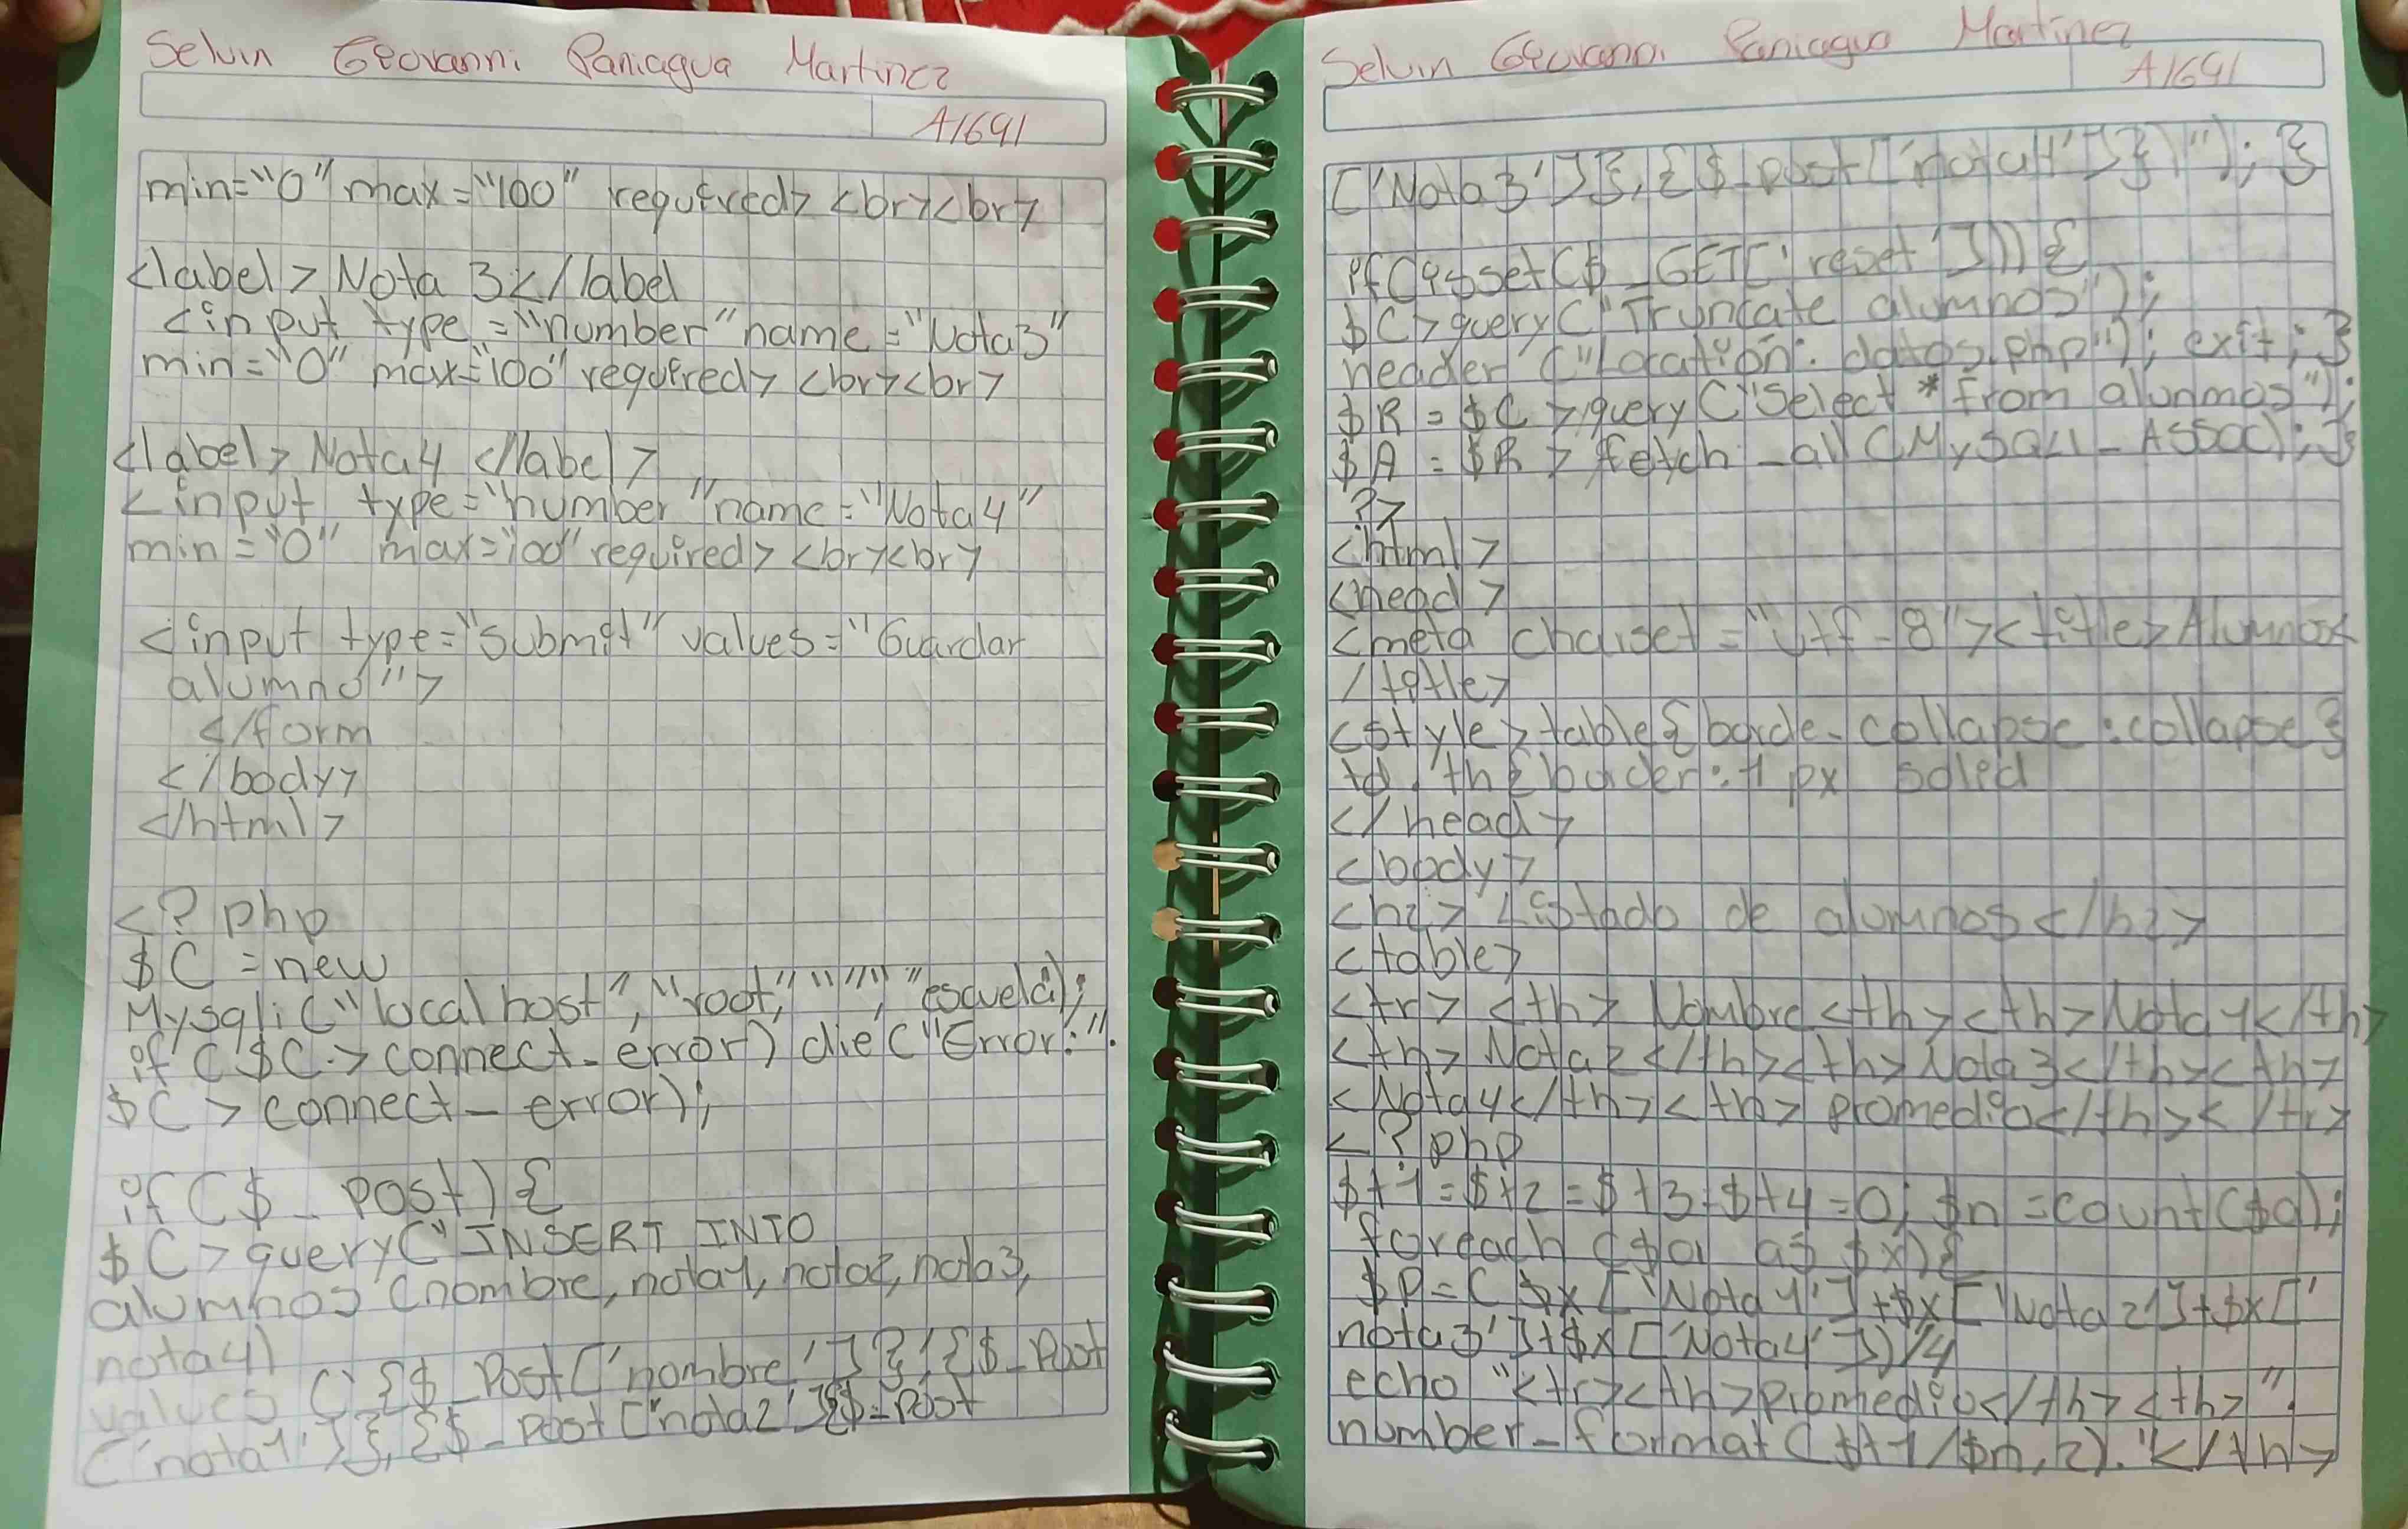 Selvin Geovanni Paniagua Martinez
A1691
min="0" max="100" required> <br><br>
<label> Nota 3</label
<input type="number" name="Nota3"
min="0" max="100" required> <br><br>
<label> Nota4 </label>
<input type="number" name="Nota4"
min="0" max="100" required> <br><br>
<input type="submit" values="Guardar
alumno">
</form
</body>
</html>
<? php
$C = new
Mysqli ("localhost", "root", "", "escuela);
if ($C-> connect_error) die ("Error:".
$C > connect_error);
if ($_Post) {
$C > query ("INSERT INTO
alumnos (nombre, nota1, nota2, nota3,
nota4)
values (' {$_Post ['nombre'] }' {$_Post
['nota1'] }, {$_Post ['nota2'] {$_Post
Selvin Geovanni Paniagua Martinez
A1691
['Nota3'] }, { $_post ['nota4'] }) "); }
if (isset ($_GET ['reset'])) {
$C > query ("Truncate alumnos");
header ("Location: datos.php"); exit; }
$R = $C > query ("Select * from alunmos");
$A = $R > fetch_all (MySQLI_ASSOC); }
?>
<html>
<head>
<meta charset = "utf-8"> <title> Alumnos<
/title>
<style> table { borde-collapse: collapse }
td, th { border: 1 px solid
</head>
<body>
<h2> Listado de alumnos </h2>
<table>
<tr> <th> Nombre <th> <th> Nota 1</th>
<th> Nota2 </th> <th> Nota3 </th> <th>
<Nota4 </th> <th> promedio </th> </tr>
<? php
$t1 = $t2 = $t3 = $t4 = 0; $n = count ($a);
foreach ($a as $x) {
$P = ( $x ['Nota1'] + $x ['Nota2'] + $x ['
nota3'] + $x ['Nota4'])/4
echo "<tr><th>Promedio</th><th>".
number_format ($t1/$n, 2). "</th>